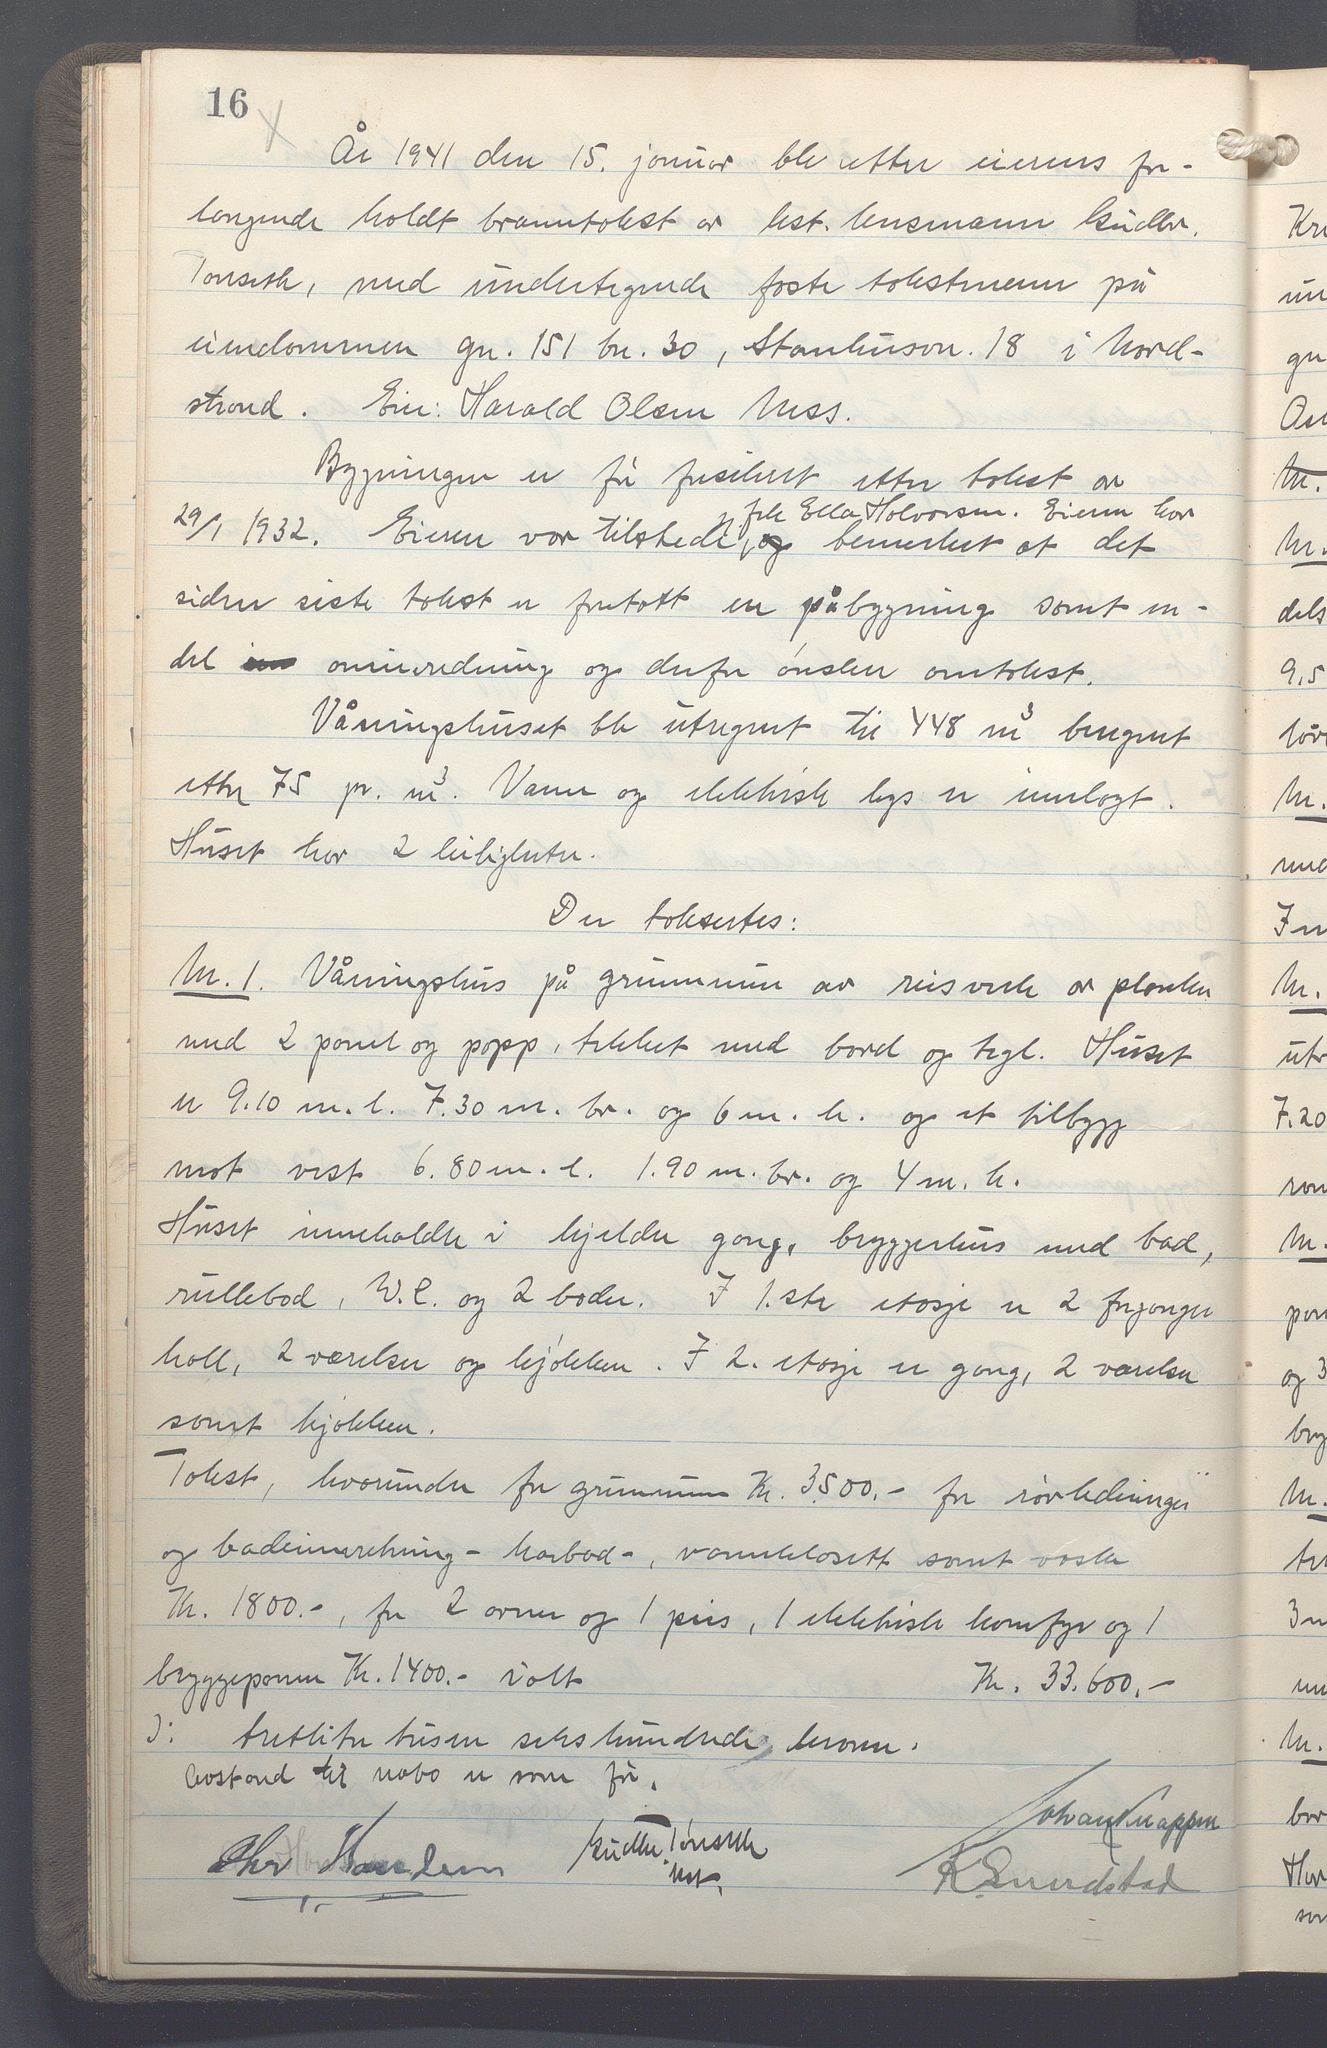 16
År 1941 den 15. januar ble etter eierens for-
langende holdt branntakst av kst. lensmann Gudbr.
Tønseth, med undertegnede faste takstmenn på
eiendommen gn. 151 bn. 30, Stenhusvn. 18 i Nord-
strand. Eier: Harald Olsen Næss.
Bygningen er før forsikret etter takst av
29/1 1932. Eieren var tilstede, og bemerket at det
v/ frk Ella Halvorsen. Eieren har
siden siste takst er foretatt en påbygning samt en-
del ominnredning og derfor ønsker omtakst.
Våningshuset ble utregnet til 448 m³ beregnet
etter 75 pr. m³. Vann og elektrisk lys er innlagt.
Huset har 2 leiligheter.
Der takseertes:
Nr. 1. Våningshus på grunnmur av reisverk av planker
med 2 panel og papp, tekket med bord og tegl. Huset
er 9.10 m. l. 7.30 m. br. og 6 m. h. og et tilbygg
mot vest 6.80 m. l. 1.90 m. br. og 4 m. h.
Huset inneholder i kjelder gang, bryggerhus med bad,
rullebod, W.C. og 2 boder. I 1.ste etasje er 2 forganger
hall, 2 værelser og kjøkken. I 2. etasje er gang, 2 værelser
samt kjøkken.
Takst, hvorunder for grunnmur Kr. 3500.- for rørledninger
og badeinnretning - karbad -, vannklosett samt vaske
Kr. 1800.-, for 2 ovner og 1 peis, 1 elektrisk komfyr og 1
bryggepanne Kr. 1400.- ialt Kr. 33.600.-
ɔ: trettitre tusen sekshundrede kroner.
Avstand til nabo er som før.
Gudbr. Tønseth
kst.
Johan Knappen
K Sundstad
Kr
un
gn
Nr.
dels
9,5
Nr.
med
7 m
Nr.
utr
7.20
Nr.
og 3
bryg
Nr.
3 m
Nr.
bor
som